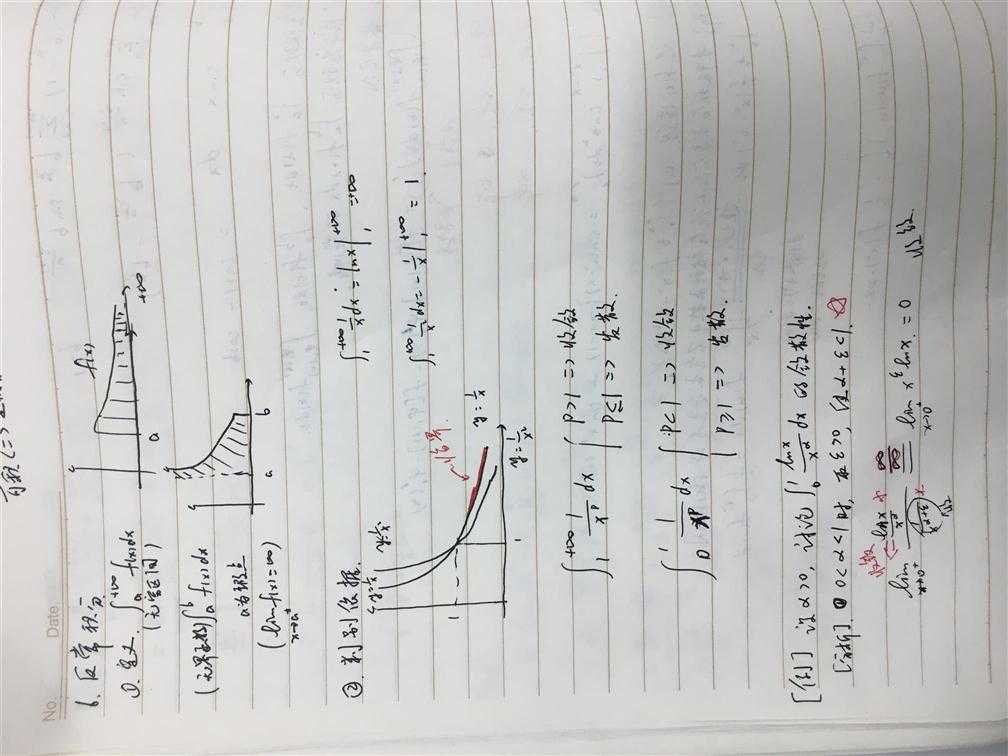 No.
Date
6. 反常积分
① 定义. ∫_a^{+∞} f(x)dx
(无穷区间)
f(x)
a
+∞
(无界函数) ∫_a^b f(x)dx
a为瑕点
(lim_{x→a⁺} f(x)=∞)
a
b
② 判别依据.
y=1/x²
y=1/x
1
1
y=1/x
y=1/x²
∫_1^{+∞} 1/x dx = lnx |_1^{+∞} = +∞
∫_1^{+∞} 1/x² dx = -1/x |_1^{+∞} = 1.
∫_1^{+∞} 1/x^p dx { P>1 => 收敛
P≤1 => 发散.
∫_0^1 1/x^p dx { P<1 => 收敛
P≥1 => 发散.
[例] 设α>0, 讨论 ∫_0^1 lnx/x^α dx 的敛散性.
[分析] ① 0<α<1时, 取ε>0, 使α+ε<1.
收敛
lim_{x→0⁺} (lnx/x^α)/(1/x^{α+ε}) = lim_{x→0⁺} x^ε lnx = 0
收敛
收敛